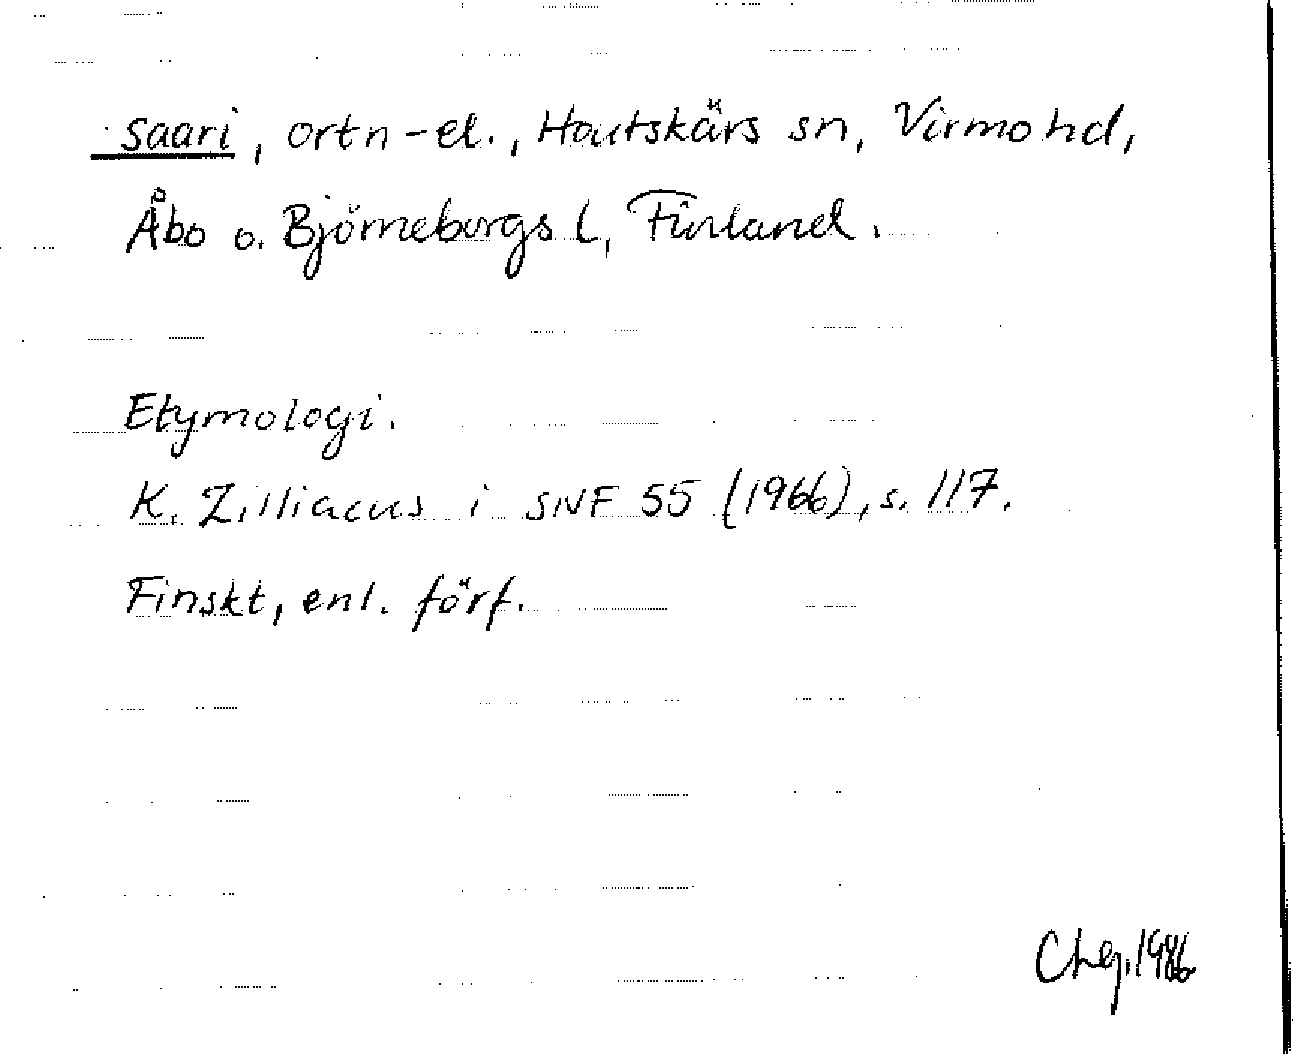 saari, ortn-el., Houtskärs sn, Virmo hd,
Åbo o. Björneborgs l, Finland.
Etymologi.
K. Zilliacus i SNF 55 (1966), s. 117.
Finskt, enl. förf.
1986